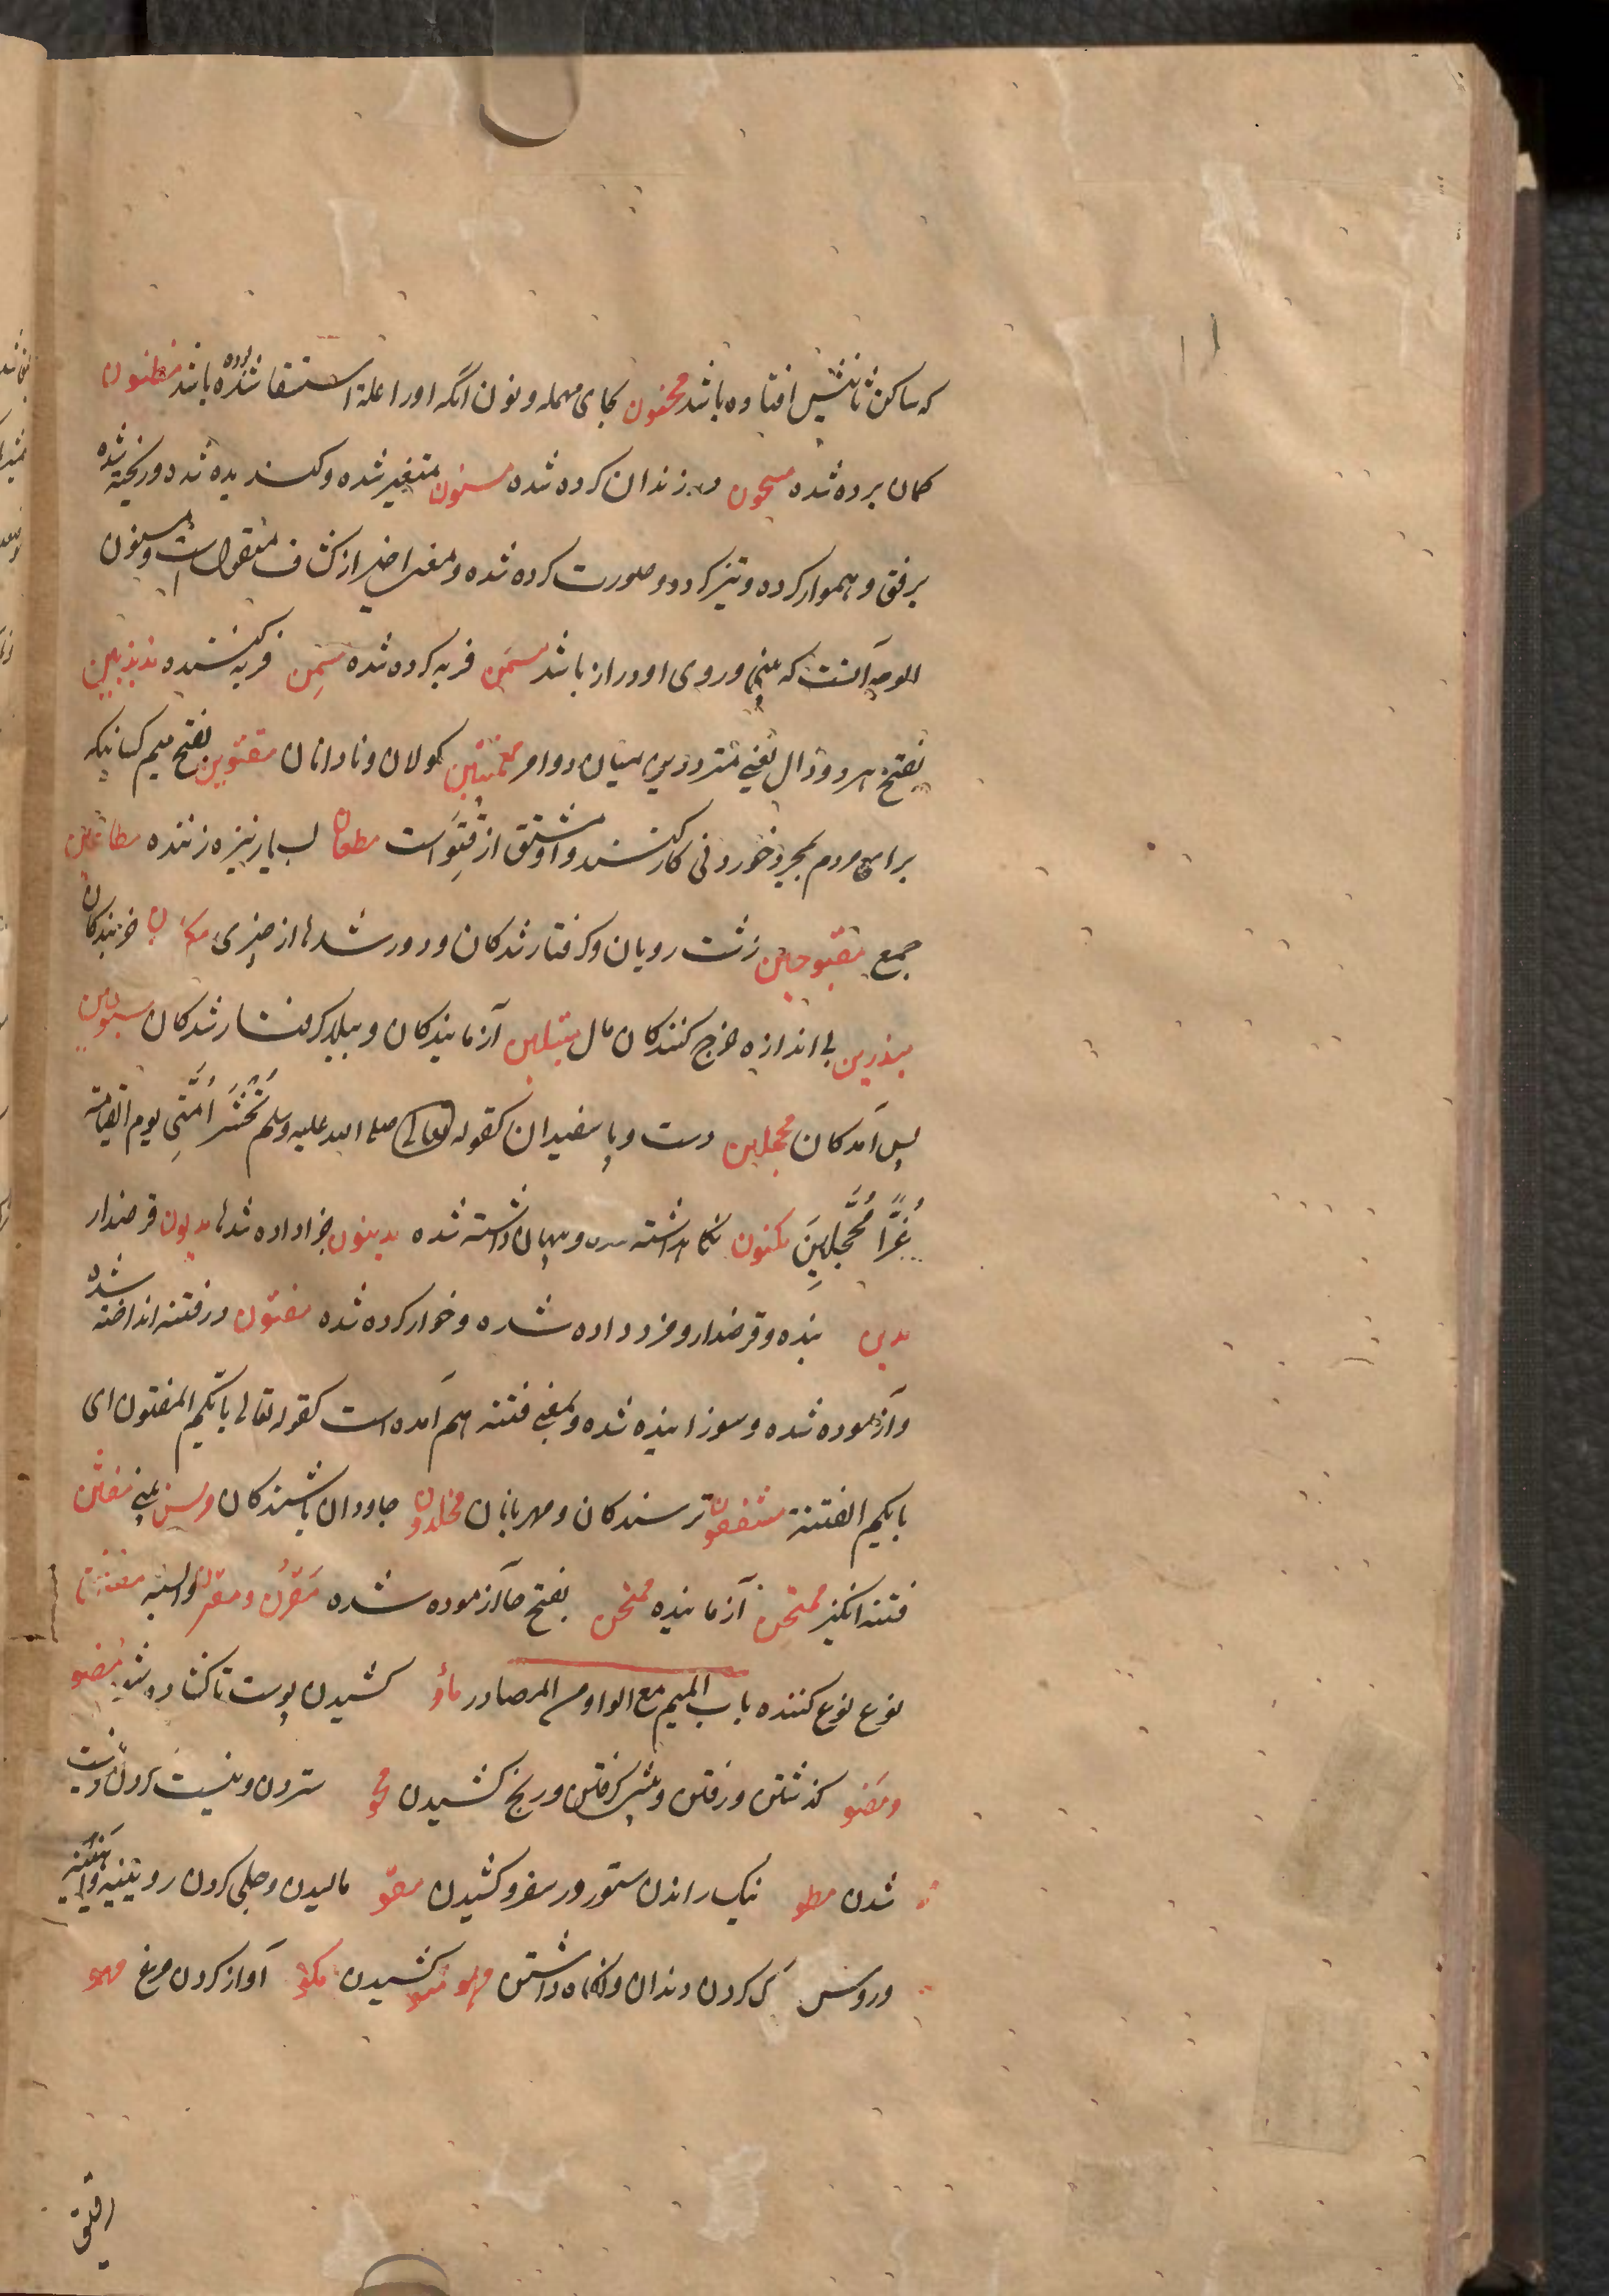 که ساکن ثانیش افتاده باشد محقون بحای مهمله و نون آنکه اورا علة استسقا شده بوده باشد مظنون
کمان برده شده مسجون در زندان کرده شده مسنون متغیر شده و کسندیده شده و ریخته شده
برفق و هموار کرده و تیز کرده و صورت کرده شده و معنی اخیر از کشاف منقول است و مسنون
الوجه آنست که بینی و روی او دراز باشد مسمَن فربه کرده شده مسمِن فربه کننده مذبذبین
بفتح هر دو ذال یعنی متردد بین میان دو امر کولان و نادانان مقتوین بفتح میم کسانیکه
برای مردم بمجرد خوردنی کار کنند و او مشتق از قتو است مطعان بسیار نیزه زننده مطاعین
جمع مقبوحین زشت رویان و کرفتار شدکان و دور شدها از چیزی خزیندکان
مبذرین بی اندازه خرج کنندکان مال مبتلین آزمایندکان و ببلا کرفتار شدکان مسبوقین
پس آمدکان محجلین دست و پا سفیدان کقوله تعالی صلی الله علیه وسلم تُحشَرُ اُمَّتِی یوم القیامة
غُرًّا مُحَجَّلِینَ مکنون نکاهداشته شده و پنهان داشته شده مدینون جزا داده شدها مدیون قرضدار
مدین بنده و قرضدار و مزد داده شده و خوار کرده شده مفتون در فتنه انداخته شده
و آزموده شده و سوزانیده شده و بمعنی فتنه هم آمده است کقوله تعالی بایّکم المفتون ای
بایکم الفتنة مشفقون ترسندکان و مهربانان مخلدون جاودان باشندکان و مسن یعنی مفتن
فتنه انکیز ممتحِن آزماینده ممتحَن بفتح حا آزموده شده مقرَن و مقرن وابسته مفنن
نوع نوع کننده باب المیم مع الواو من المصادر مأو کشیدن پوست تا کشاده شود مضو
و مَضو کذشتن و رفتن و پیش کرفتن و رنج کشیدن محو ستردن و نیست کردن و نیست
شدن مطو نیک راندن ستور در سفر و کشیدن مقو مالیدن و جلی کردن رویینه و آیینه
و روسن کردن دندان و نکاه داشتن مهو متو کشیدن مکو آواز کردن مرغ مهو